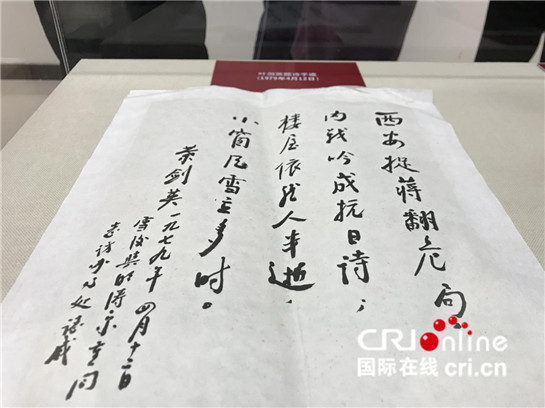 叶剑英题诗手迹
（1979年4月12日）
西安捉蔣翻危局，
内战吟成抗日诗；
楼屋依然人半逝，
小窗风雪立多时。
葉剑英一九七九年四月十二日
CRI Online
国际在线 cri.cn